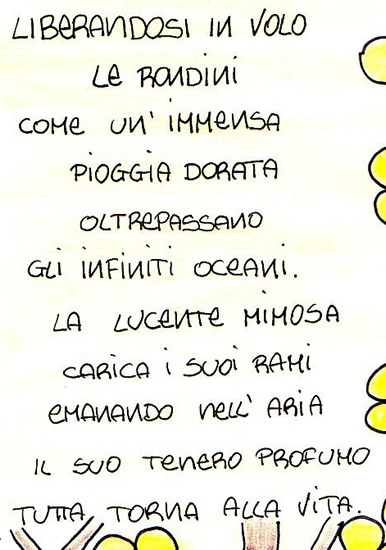 LIBERANDOSI IN VOLO
LE RONDINI
COME UN' IMMENSA
PIOGGIA DORATA
OLTREPASSANO
GLI INFINITI OCEANI.
LA LUCENTE MIMOSA
CARICA I SUOI RAMI
EMANANDO NELL' ARIA
IL SUO TENERO PROFUMO
TUTTA TORNA ALLA VITA.